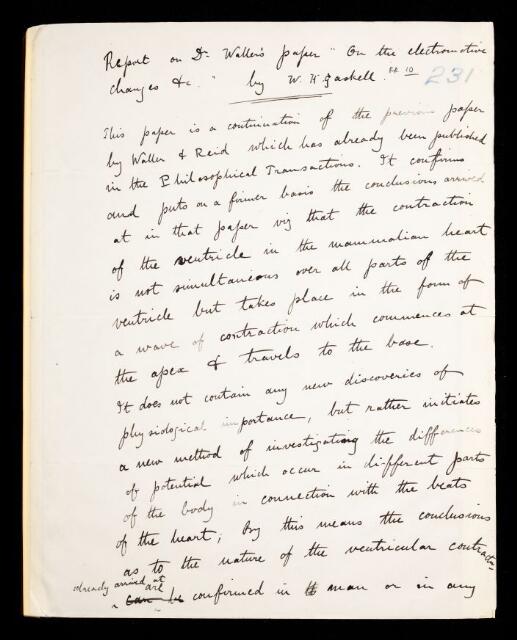 Report on Dr. Waller's paper "On the electromotive
changes &c." by W. H. Gaskell.
RR 10
231
This paper is a continuation of the previous paper
by Waller & Reid which has already been published
in the Philosophical Transactions. It confirms
and puts on a firmer basis the conclusions arrived
at in that paper viz that the contraction
of the ventricle in the mammalian heart
is not simultaneous over all parts of the
ventricle but takes place in the form of
a wave of contraction which commences at
the apex & travels to the base.
It does not contain any new discoveries of
physiological importance, but rather initiates
a new method of investigating the differences
of potential which occur in different parts
of the body in connection with the beats
of the heart; By this means the conclusions
as to the nature of the ventricular contractn
already arrived at are
can be confirmed in man or in any